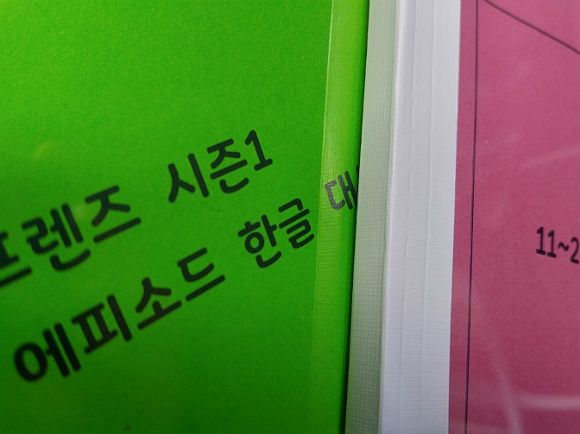 프렌즈 시즌1
에피소드 한글 대
11~2